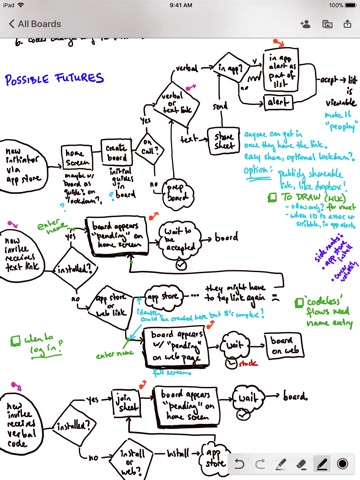 iPad
9:41 AM
100%
All Boards
POSSIBLE FUTURES
verbal
in app?
yes
no
in app
alert as
part of
list
alert
accept → list
is
viewable
make it
"peopley"
verbal
or
text link
text
send
share
sheet
new
initiator
via
app store
home
screen
create
board
on
call?
yes
no
prep
board
maybe w/
board as
guide on
lockdown?
initial
guides in
board
anyone can get in
once they have the link.
easy share, optional lockdown?
option:
publicly shareable
link, like dropbox!
TO DRAW (MLK)
- view only? for vuset
scribble, in app alerts
enter name
board appears
"pending" on
home screen
wait to
be
accepted
board
new
invitee
receives
text link
installed?
yes
no
app store
or
web link
app store
... they might have
to tap link again
identity
could be created here but it's complex!
side routes:
• app store
install
'codeless'
flows need
name entry
when to
log in?
enter name
board appears
w/ "pending"
on web page
full screens
wait
stuck
board
on web
new
invitee
receives
verbal
code
installed?
yes
no
join
sheet
board appears
"pending" on
home screen
wait
board
install
or
web?
install
app
store